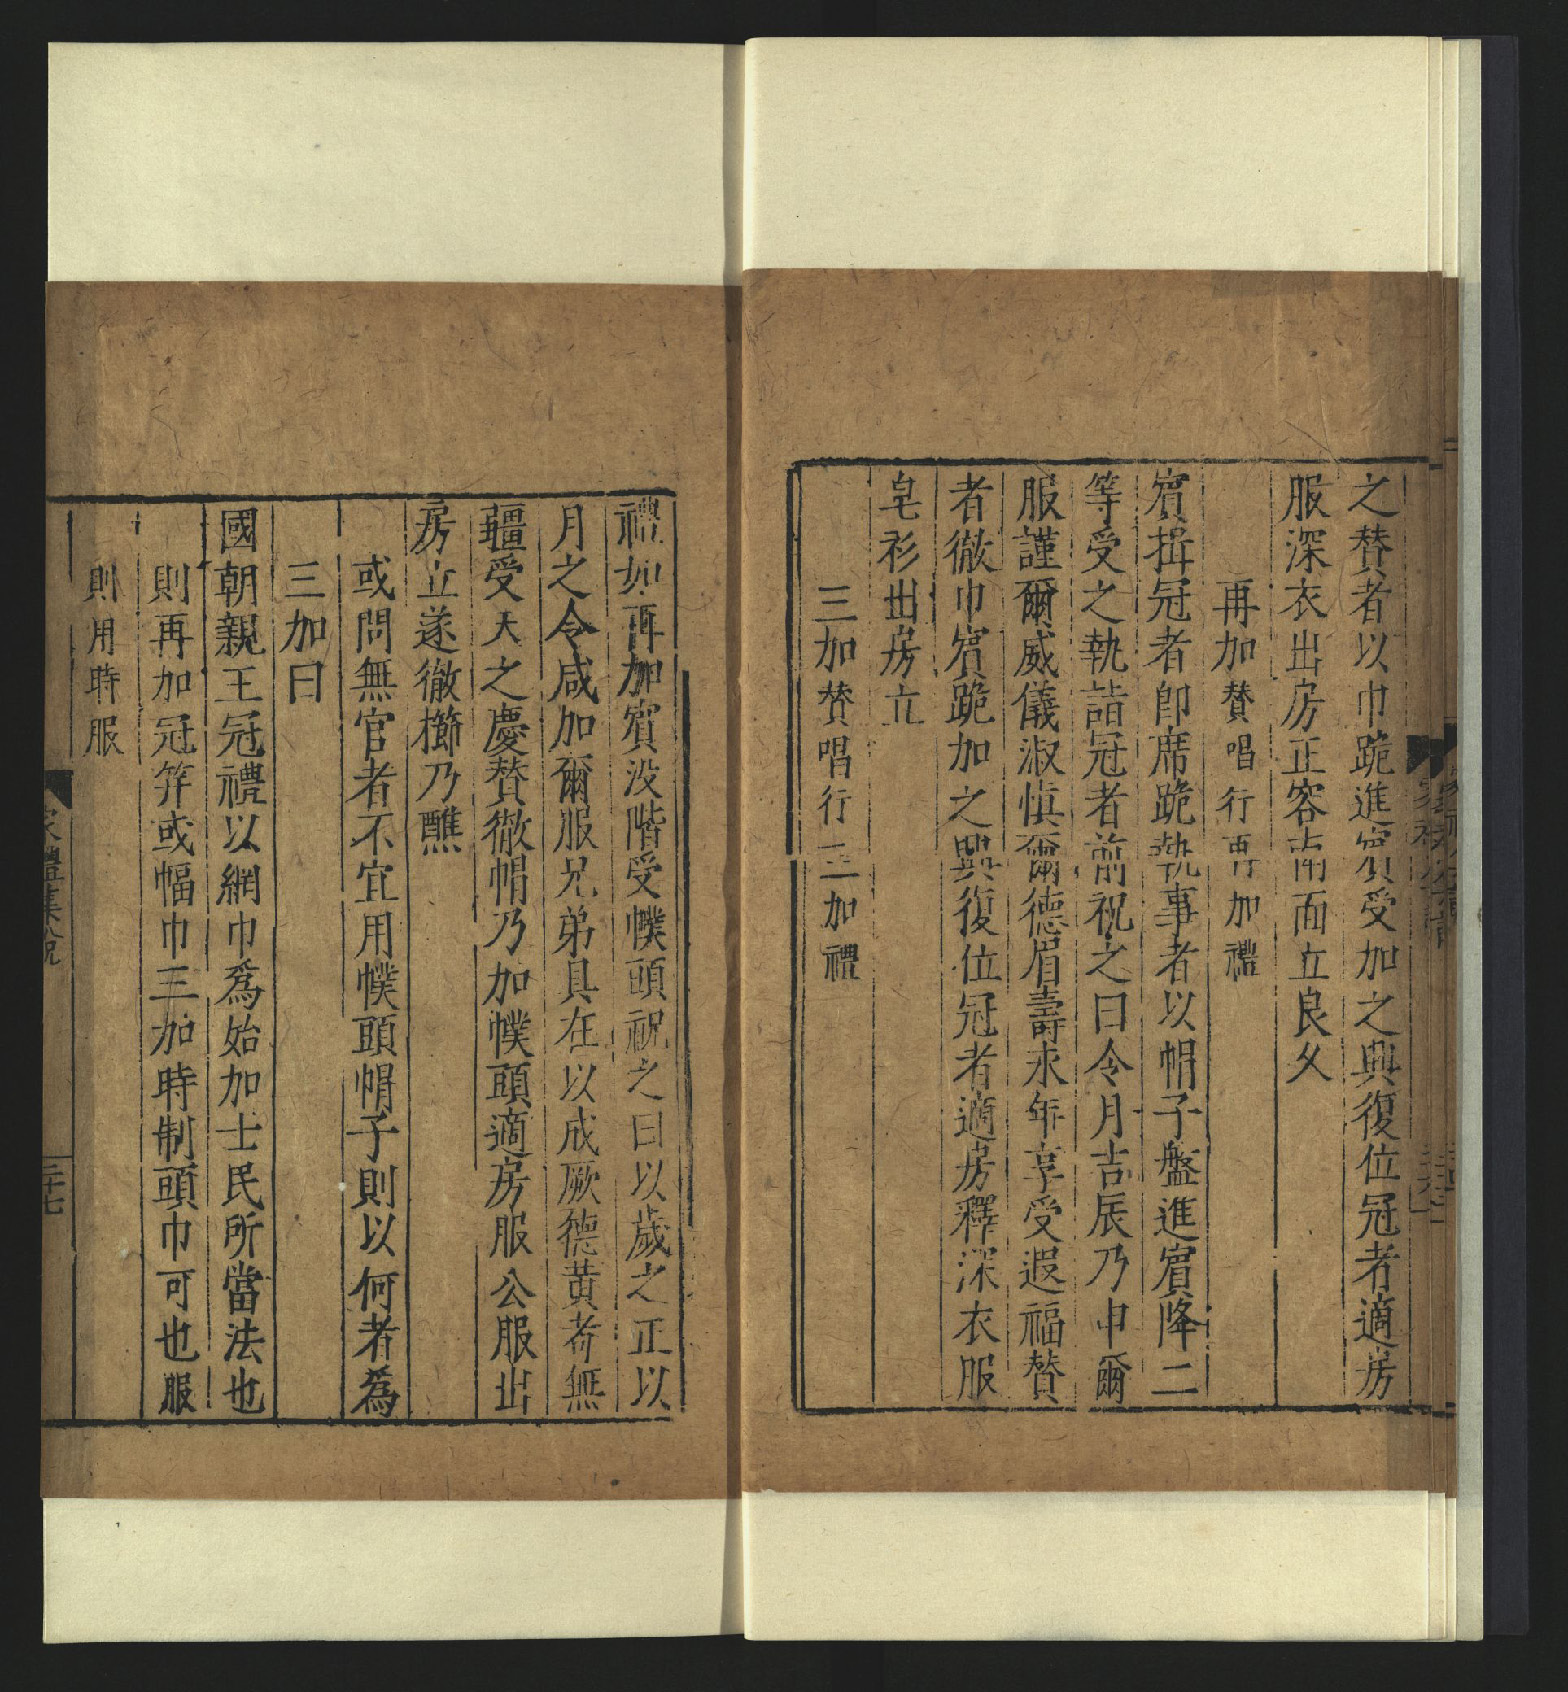 之賛者以巾跪進賔受加之興復位冠者適房
服深衣出房正容南面立良久
再加賛唱行再加禮
賔揖冠者卽席跪執事者以帽子盤進賔降二
等受之執詣冠者前祝之曰令月吉辰乃申爾
服謹爾威儀淑慎爾德眉壽永年享受遐福賛
者徹巾賔跪加之興復位冠者適房釋深衣服
皂衫出房立
三加賛唱行三加禮
禮如再加賔没階受幞頭祝之曰以歲之正以
月之令咸加爾服兄弟具在以成厥德黄耇無
疆受天之慶賛徹帽乃加幞頭適房服公服出
房立遂徹櫛乃醮
或問無官者不宜用幞頭帽子則以何者為
三加曰
國朝親王冠禮以網巾爲始加士民所當法也
則再加冠笄或幅巾三加時制頭巾可也服
則用時服
家禮集說
二十七